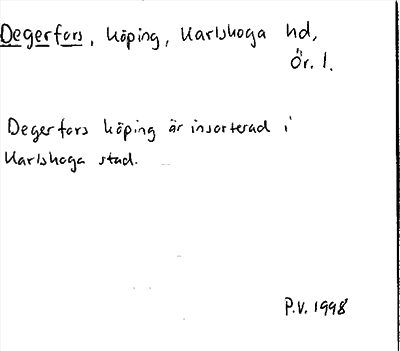 Degerfors, köping, Karlskoga hd,
Ör. l.
Degerfors köping är insorterad i
Karlskoga stad.
P.V. 1998